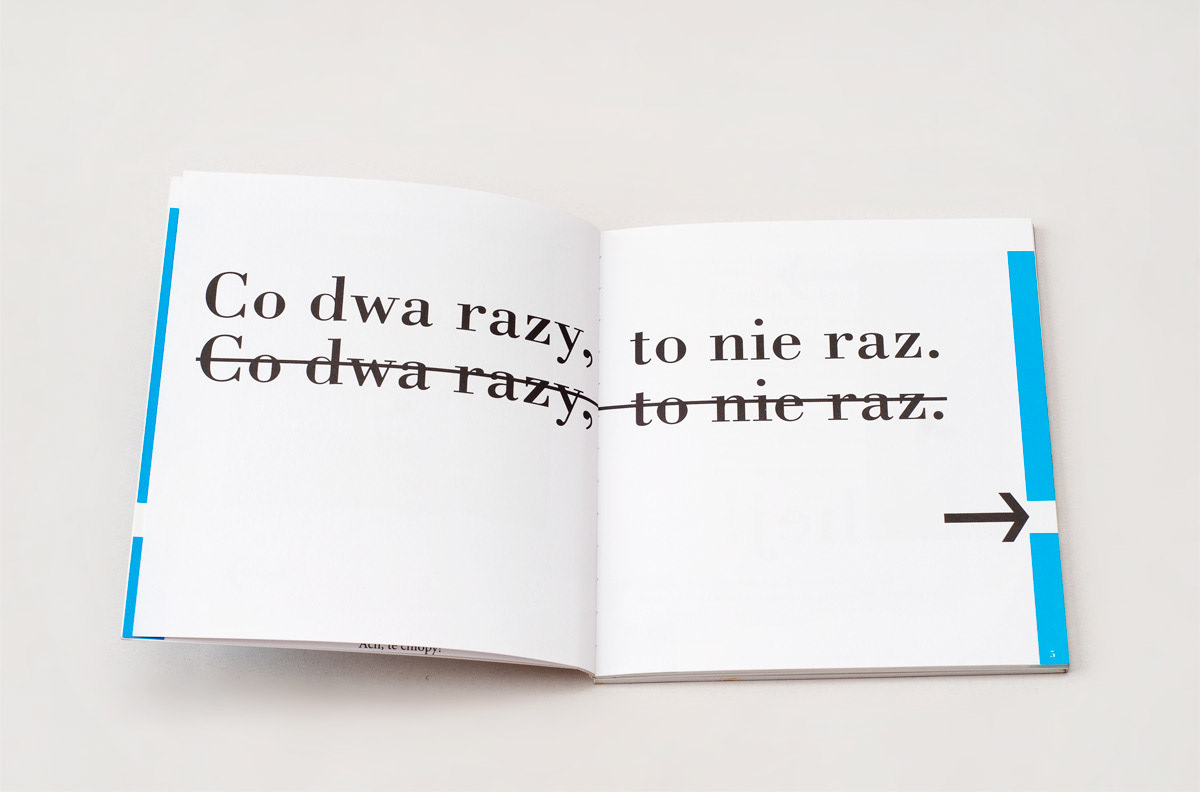 Co dwa razy, to nie raz.
Co dwa razy, to nie raz.
5
Ach, te chłopy!